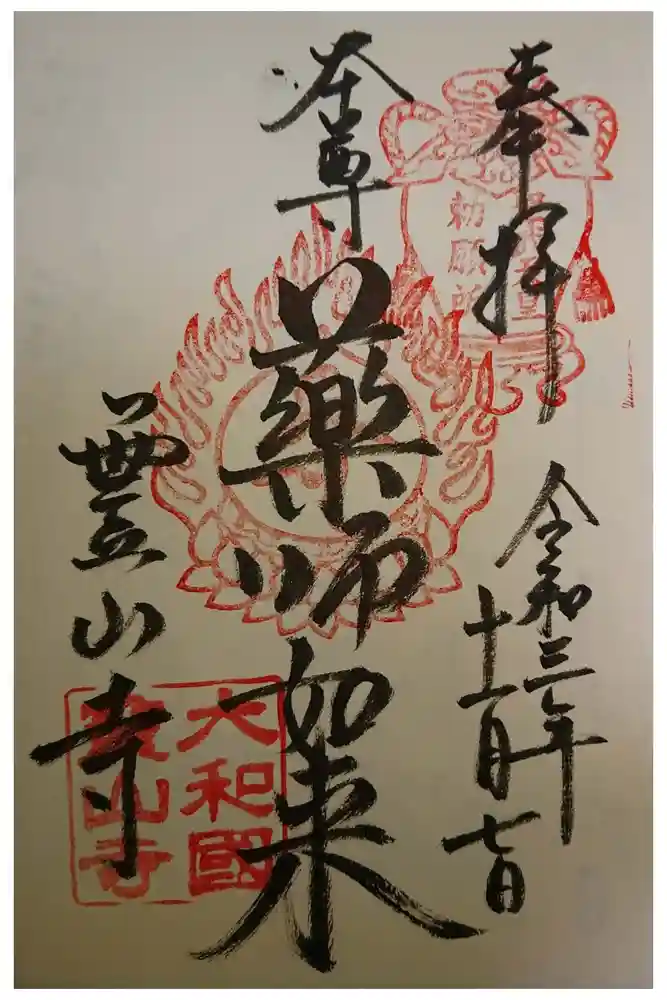 奉拝
令和三年
十一月七日
勅願所
本尊
薬師如来
霊山寺
大和國
霊山寺